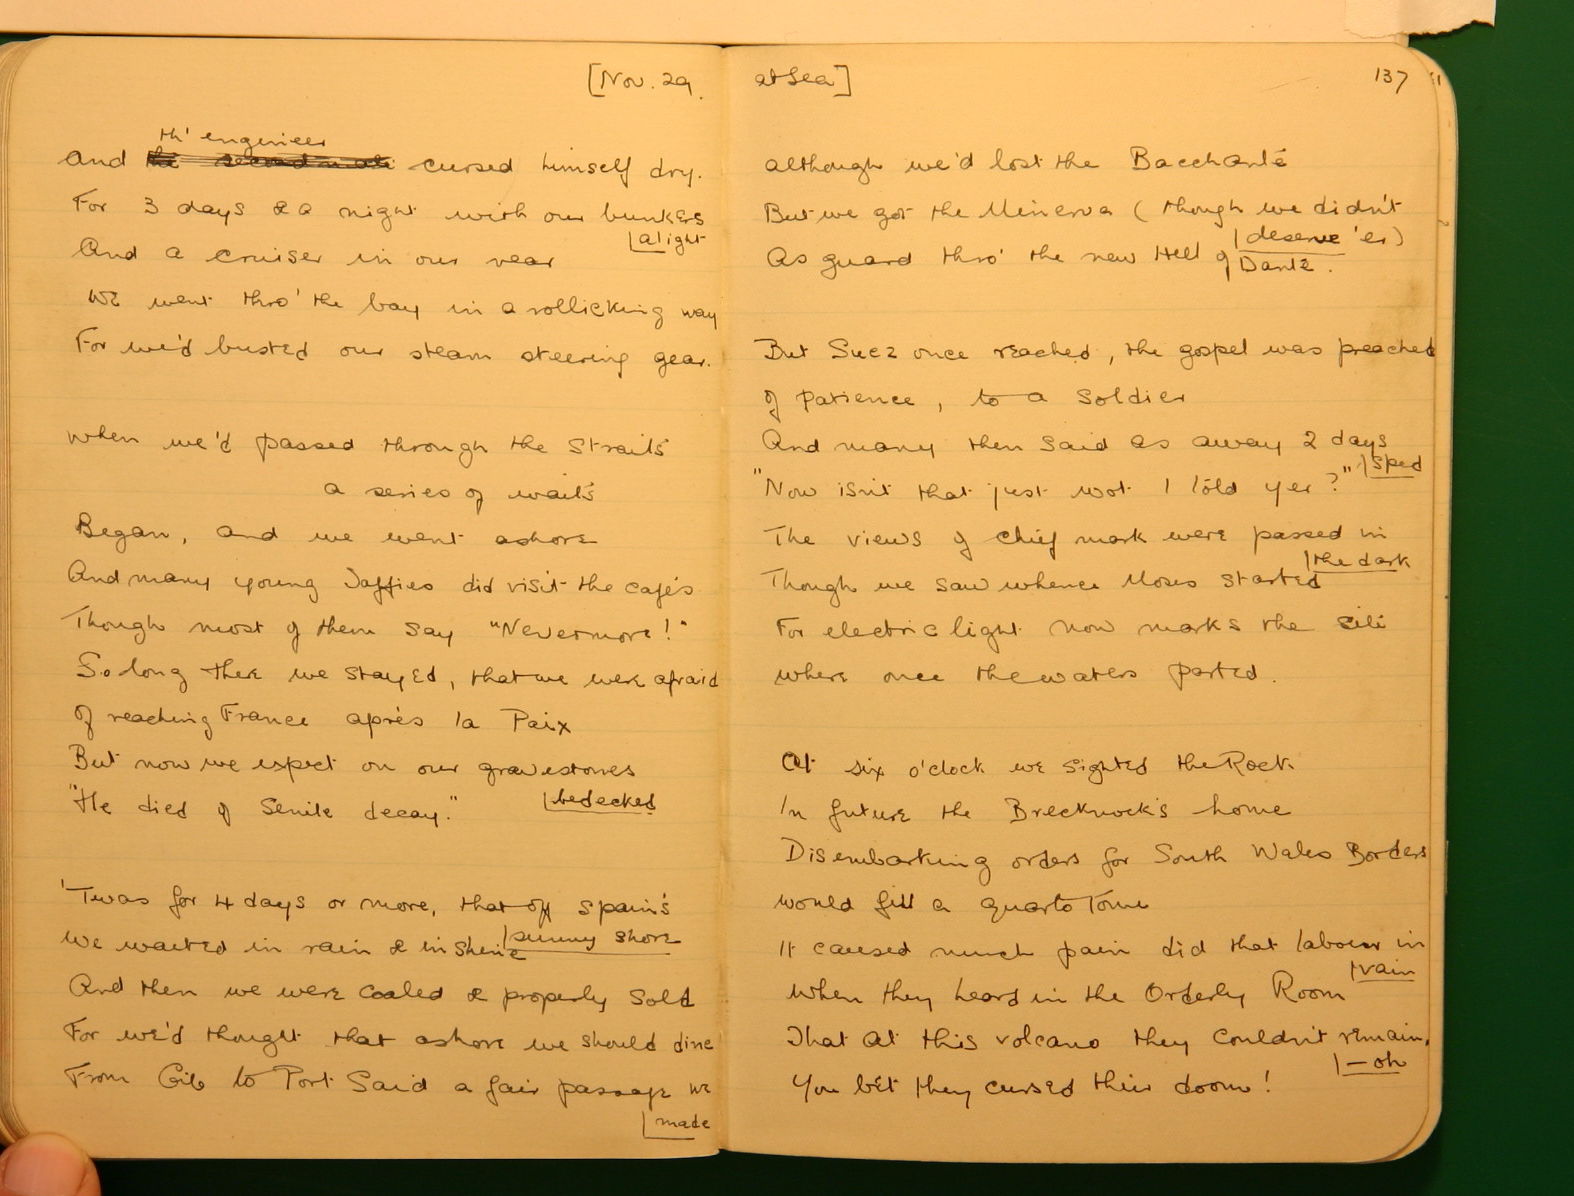 [Nov. 29.
th' engineer
And the second mate cursed himself dry.
For 3 days & a night with our bunkers
alight
And a cruiser in our rear
We went thro' the bay in a rollicking way
For we'd busted our steam steering gear.
When we'd passed through the Straits
a series of waits
Began, and we went ashore
And many young Jaffies did visit the cafés
Though most of them say "Nevermore!"
So long there we stayed, that we were afraid
Of reaching France après la Paix
But now we expect on our gravestones
bedecked
"He died of Senile decay."
'Twas for 4 days or more, that off Spain's
sunny shore
We waited in rain & in shine
And then we were coaled & properly sold
For we'd thought that ashore we should dine
From Gib to Port Said a fair passage we
made
at Sea]
137
although we'd lost the Bacchante
But we got the Minerva (though we didn't
deserve 'er)
As guard thro' the new Hell of Dante.
But Suez once reached, the gospel was preached
Of patience, to a Soldier
And many then said as away 2 days
sped
"Now isn't that just wot I told yer?"
The views of chief mark were passed in
the dark
Though we saw whence Moses started
For electric light now marks the site
where once the waters parted.
At six o'clock we sighted the Rock
In future the Brecknock's home
Disembarking orders for South Wales Borders
would fill a quarto Tome
It caused much pain did that labour in
vain
When they heard in the Orderly Room
That at this volcano they couldn't remain,
-oh
You bet they cursed their doom!